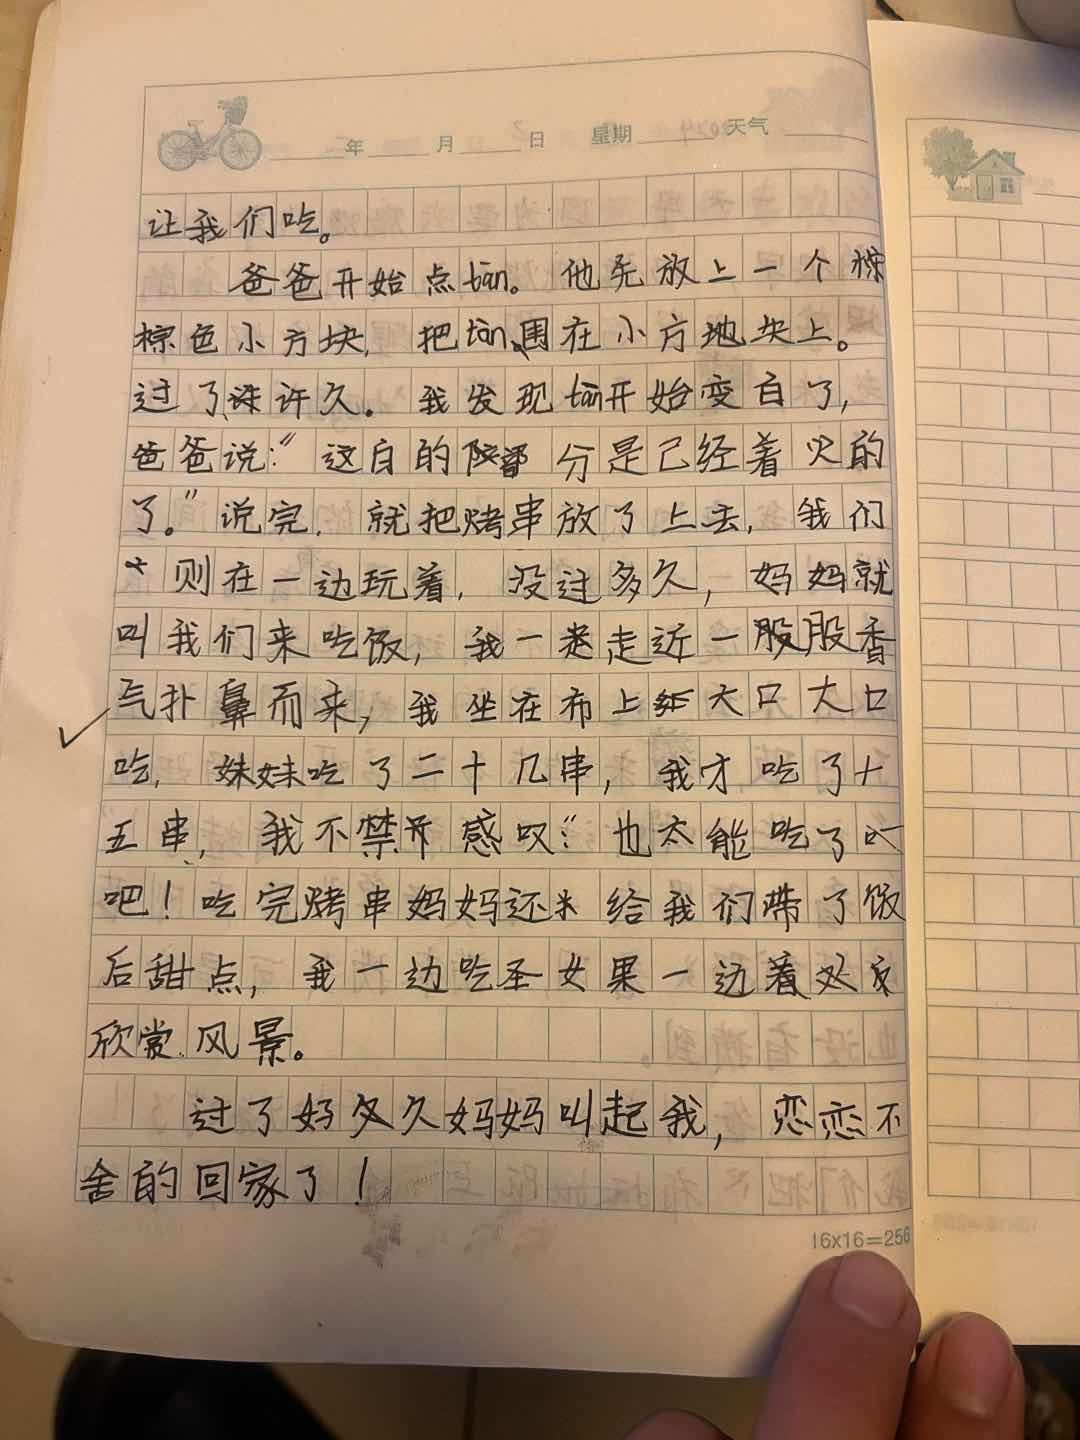 年 月 日 星期 天气
让我们吃。
爸爸开始点tàn。他先放上一个棕
棕色小方块,把tàn围在小方地块上。
过了许久。我发现tàn开始变白了,
爸爸说:“这白的部分是已经着火的
了。”说完,就把烤串放了上去,我们
则在一边玩着,没过多久,妈妈就
叫我们来吃饭,我一走近一股股香
气扑鼻而来,我坐在布上大口大口
吃,妹妹吃了二十几串,我才吃了十
五串,我不禁感叹:“也太能吃了
吧!吃完烤串妈妈还给我们带了饭
后甜点,我一边吃圣女果一边着
欣赏风景。
过了好久妈妈叫起我,恋恋不
舍的回家了!
16x16=256